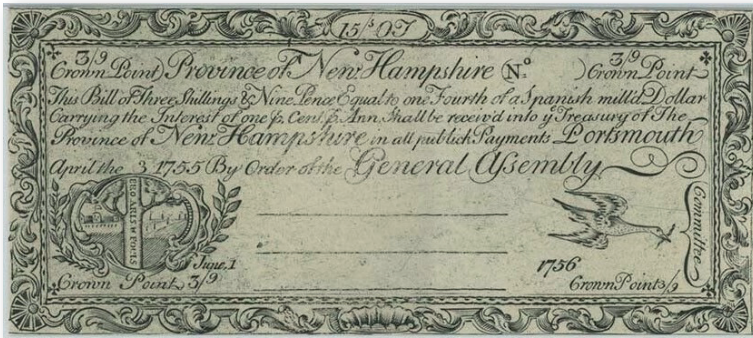 15/s OT
3/9 3/9
Crown Point) Province of New Hampshire (No. )Crown Point
This Bill of Three Shillings & Nine Pence Equal to one Fourth of a Spanish mill'd Dollar
Carrying the Interest of one ⅌. Cent. ⅌. Ann. Shall be receiv'd into ye Treasury of The
Province of New Hampshire in all publick Payments Portsmouth
April the 3 1755 By Order of the General Assembly
Committee
June. 1 1756
Crown Point 3/9 Crown Point 3/9